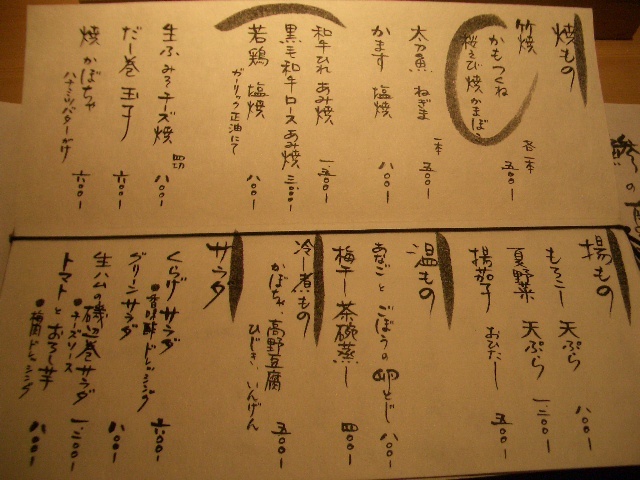 焼もの
竹焼
かもつくね
桜えび焼かまぼこ
各一本
五〇〇ー
太刀魚 ねぎま
一本
五〇〇ー
かます 塩焼 八〇〇ー
和牛ひれ あみ焼 一、五〇〇ー
黒毛和牛ロースあみ焼 三、〇〇〇ー
若鶏 塩焼
ガーリック正油にて
八〇〇ー
生ふ みそチーズ焼
八〇〇ー
だし巻玉子 六〇〇ー
焼 かぼちゃ
ハチミツバターがけ
六〇〇ー
揚もの
もろこし 天ぷら 八〇〇ー
夏野菜 天ぷら 一、二〇〇ー
揚茄子 おひたし 五〇〇ー
温もの
あなごとごぼうの卵とじ 八〇〇ー
梅干し茶碗蒸し 四〇〇ー
冷煮もの
かぼちゃ、高野豆腐
ひじき、いんげん
五〇〇ー
サラダ
くらげサラダ
●香味酢ドレッシング
六〇〇ー
グリーンサラダ 八〇〇ー
生ハムの磯辺巻サラダ
●チーズソース
一、二〇〇ー
トマトとおろし芋
●梅肉ドレッシング
八〇〇ー